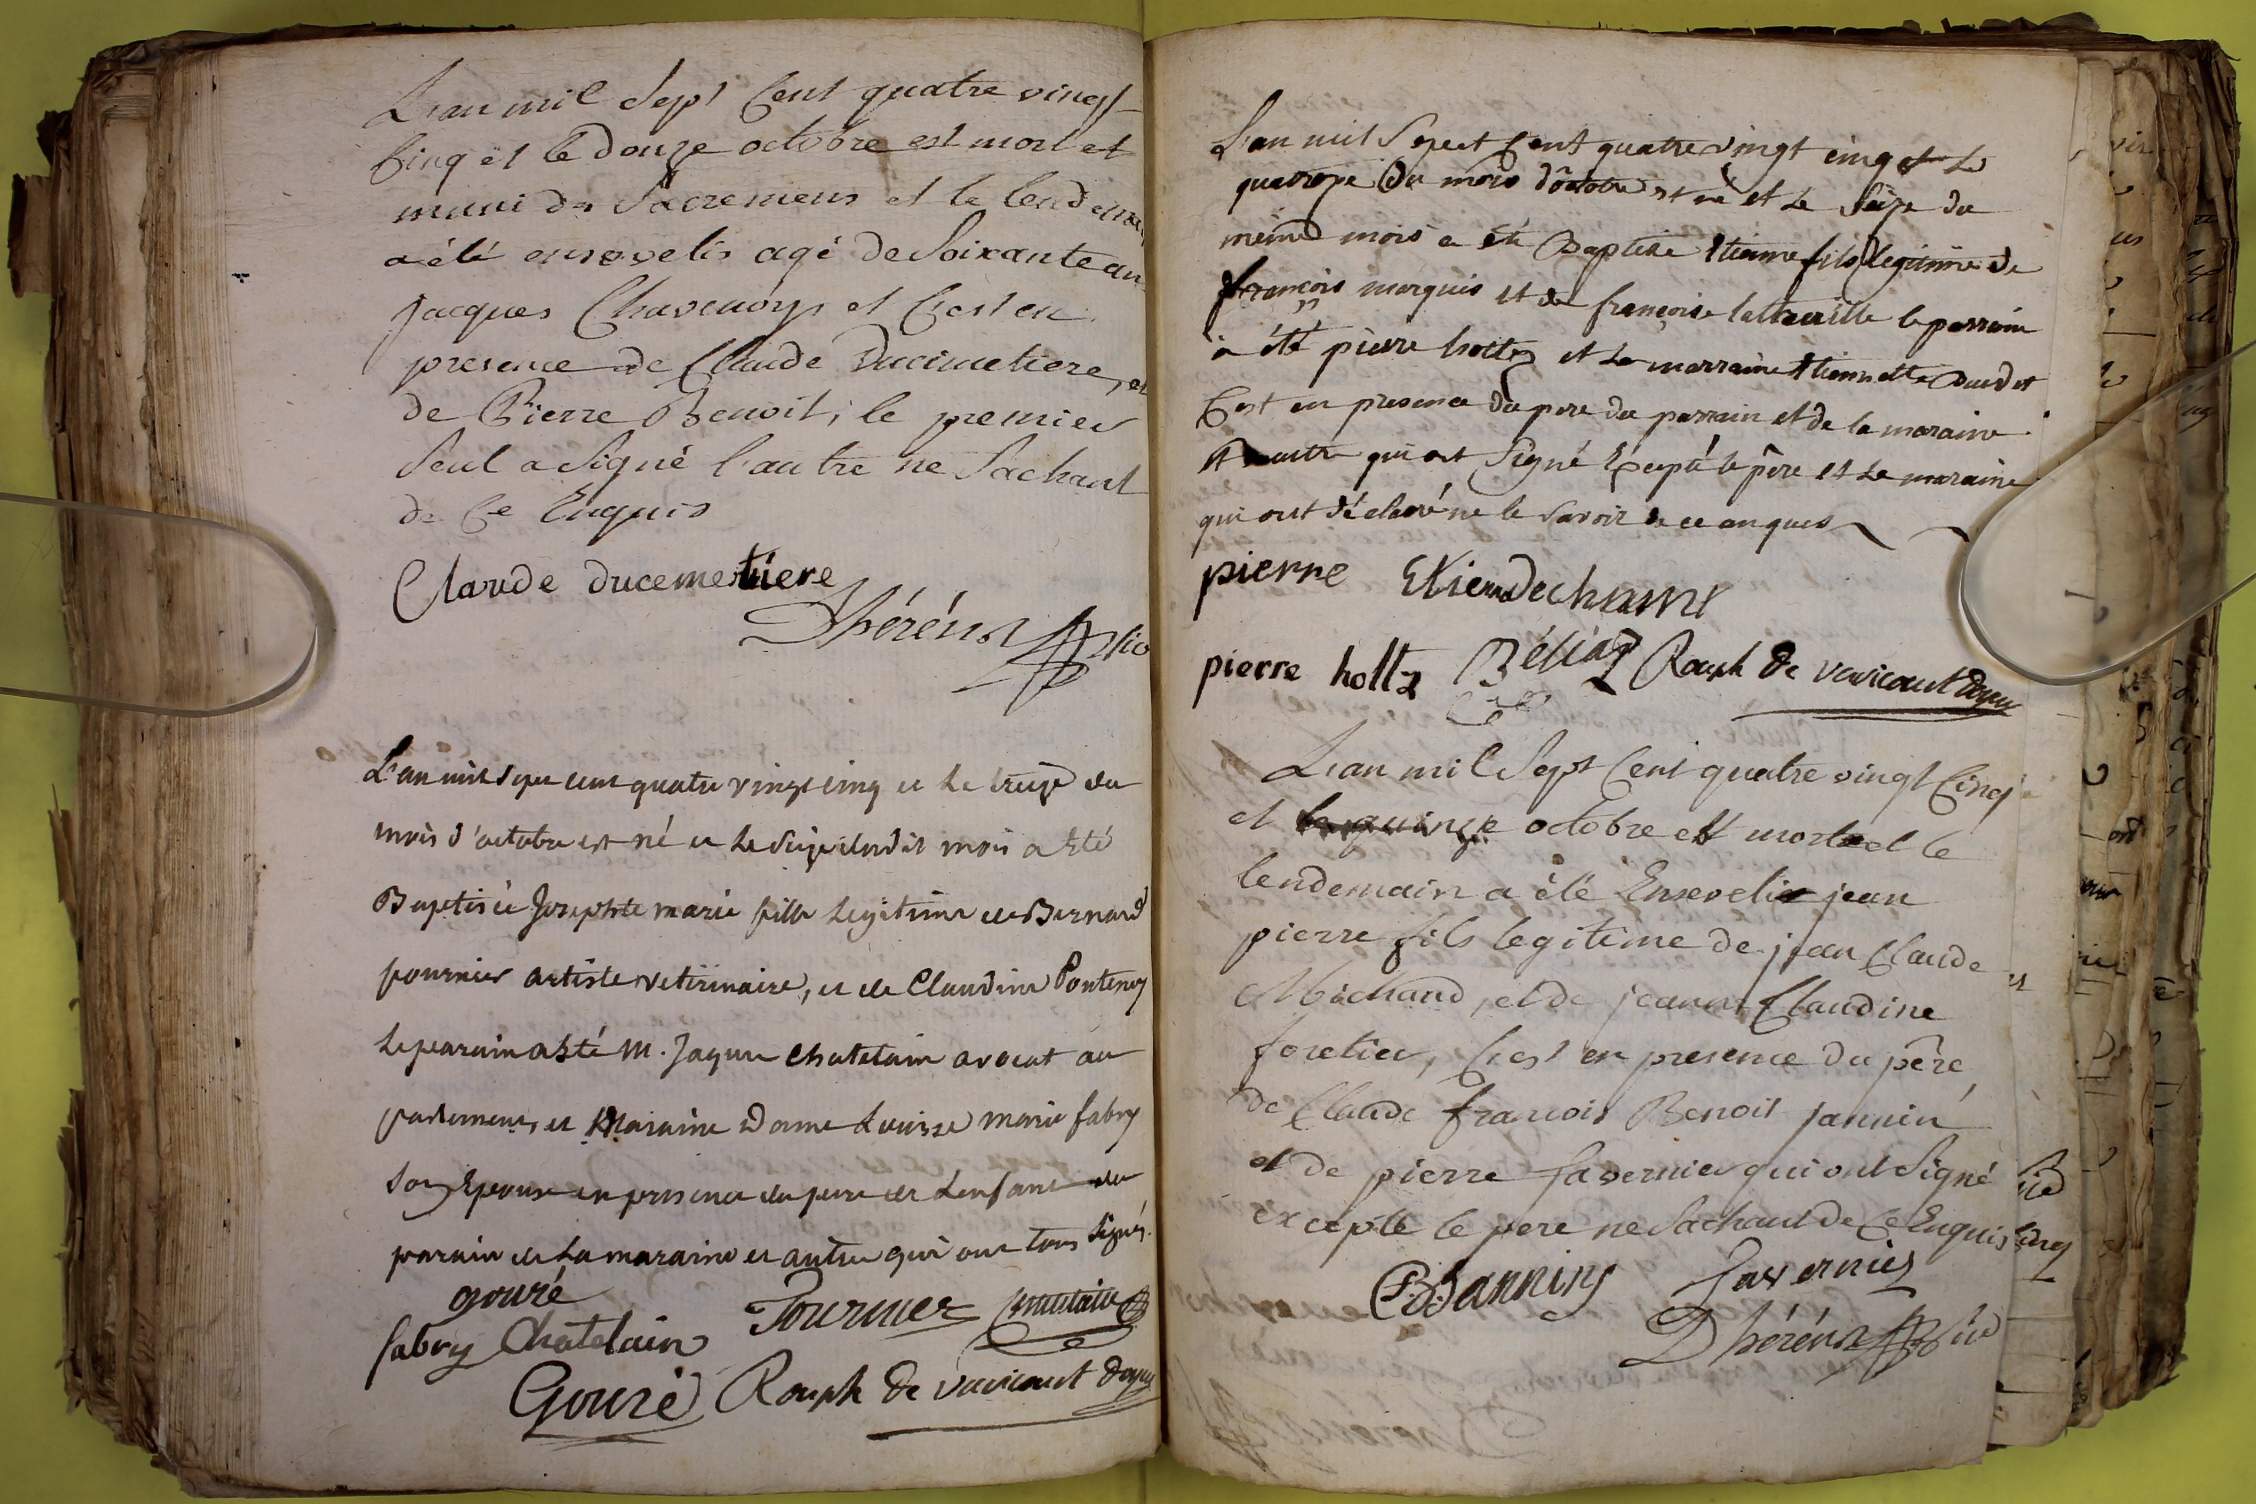 L'an mil Sept Cent quatre vingt
Cinq et le douze octobre est mort et
muni des Sacremens et le lendemain
a été ensevelis agé de Soixante an
jacques Chavenoys et C'est en
presence de Claude Ducimetiere, et
de Pierre Benoit, le premier
Seul a Signé l'autre ne Sachant
de Ce Enquis
Claude ducemetiere
Dhérens
L'an mil sept cent quatre vingt cinq et le treize du
mois d'octobre est né et le seize dudit mois a été
Baptisée Josephte marie fille Legitime de Bernard
fournier artiste vetérinaire, et de Claudine Pontenoy
le parain a été M. Jaques Chatelain avocat au
parlement, et Maraine Dame Louisse marie fabry
son Epouse en presence du pere de L'enfant du
parain de La maraine et autre qui ont tous Signés.
gouré
fabry Chatelain Fournier Chatelain
Gouré Rouph de varicourt doyen
L'an mil Sept Cent quatre vingt cinq et Le
quatorze du mois d'octobre est né et Le Seize du
même mois a été Baptisé Etienne fils legitime de
françois marquis et de françoise le parrain
a été pierre holtz et La marraine Etiennette
C'est en presence du pere du parrain et de la maraine
et autre qui ont Signé Excepté le père et La maraine
qui ont déclaré ne le Savoir de ce enques
pierre Etienne dechame
pierre holtz Béliaz Rouph de varicourt doyen
L'an mil Sept Cent quatre vingt Cinq
et le quinze octobre est mort et le
lendemain a été Ensevelie jean
pierre fils legitime de jean Claude
Michaud, et de jeanne Claudine
foretier, C'est en presence du père
de Claude francois Benoit jannin
et de pierre favernier qui ont Signé
excepté le pere ne Sachant de Ce Enquis
CFB Jannin favernier
Dhérens